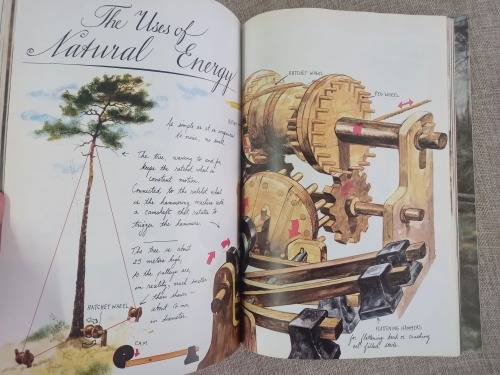 The Uses of
Natural Energy
As simple as it is ingenious
to man, no work
The tree, waving to and fro
keeps the ratchet wheel in
constant motion.
Connected to the ratchet wheel
is the hammering machine with
a camshaft that rotates to
trigger the hammers.
The tree is about
25 meters high,
so the pulleys are,
in reality, much smaller
than shown -
about 15 cm
in diameter.
RATCHET WHEEL
CAM
RATCHET WHEEL
PEG WHEEL
FLATTENING HAMMERS
for flattening bark or crushing
oil filled seeds.